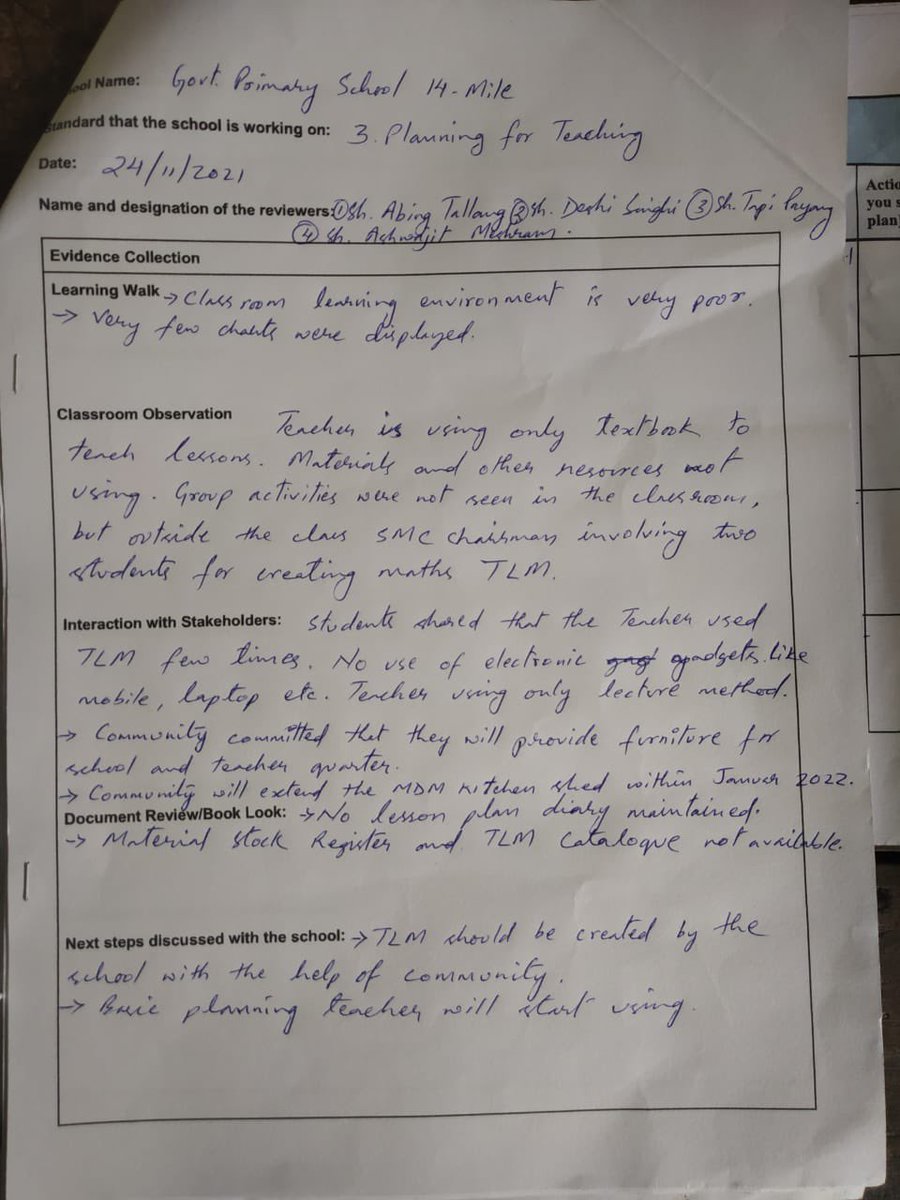 ool Name: Govt. Primary School 14-Mile
Standard that the school is working on: 3. Planning for Teaching
Date: 24/11/2021
Name and designation of the reviewers: ① Sh. Abing Tallang ② Sh. Deshi Singhi ③ Sh. Tapi Payang
④ Sh. Ashwajit Meshram.
Evidence Collection
Learning Walk → Class room learning environment is very poor.
→ Very few charts were displayed.
Classroom Observation Teacher is using only textbook to
teach lessons. Materials and other resources not
using. Group activities were not seen in the classroom,
but outside the class SMC Chairman involving two
students for creating maths TLM.
Interaction with Stakeholders: Students shared that the Teacher used
TLM few times. No use of electronic gadgets like
mobile, laptop etc. Teacher using only lecture method.
→ Community committed that they will provide furniture for
school and teacher quarter.
→ Community will extend the MDM Kitchen shed within Januar 2022.
Document Review/Book Look: → No lesson plan diary maintained.
→ Material Stock Register and TLM Catalogue not available.
Next steps discussed with the school: → TLM should be created by the
school with the help of community.
→ Basic planning teacher will start using.
Actio
you s
plan